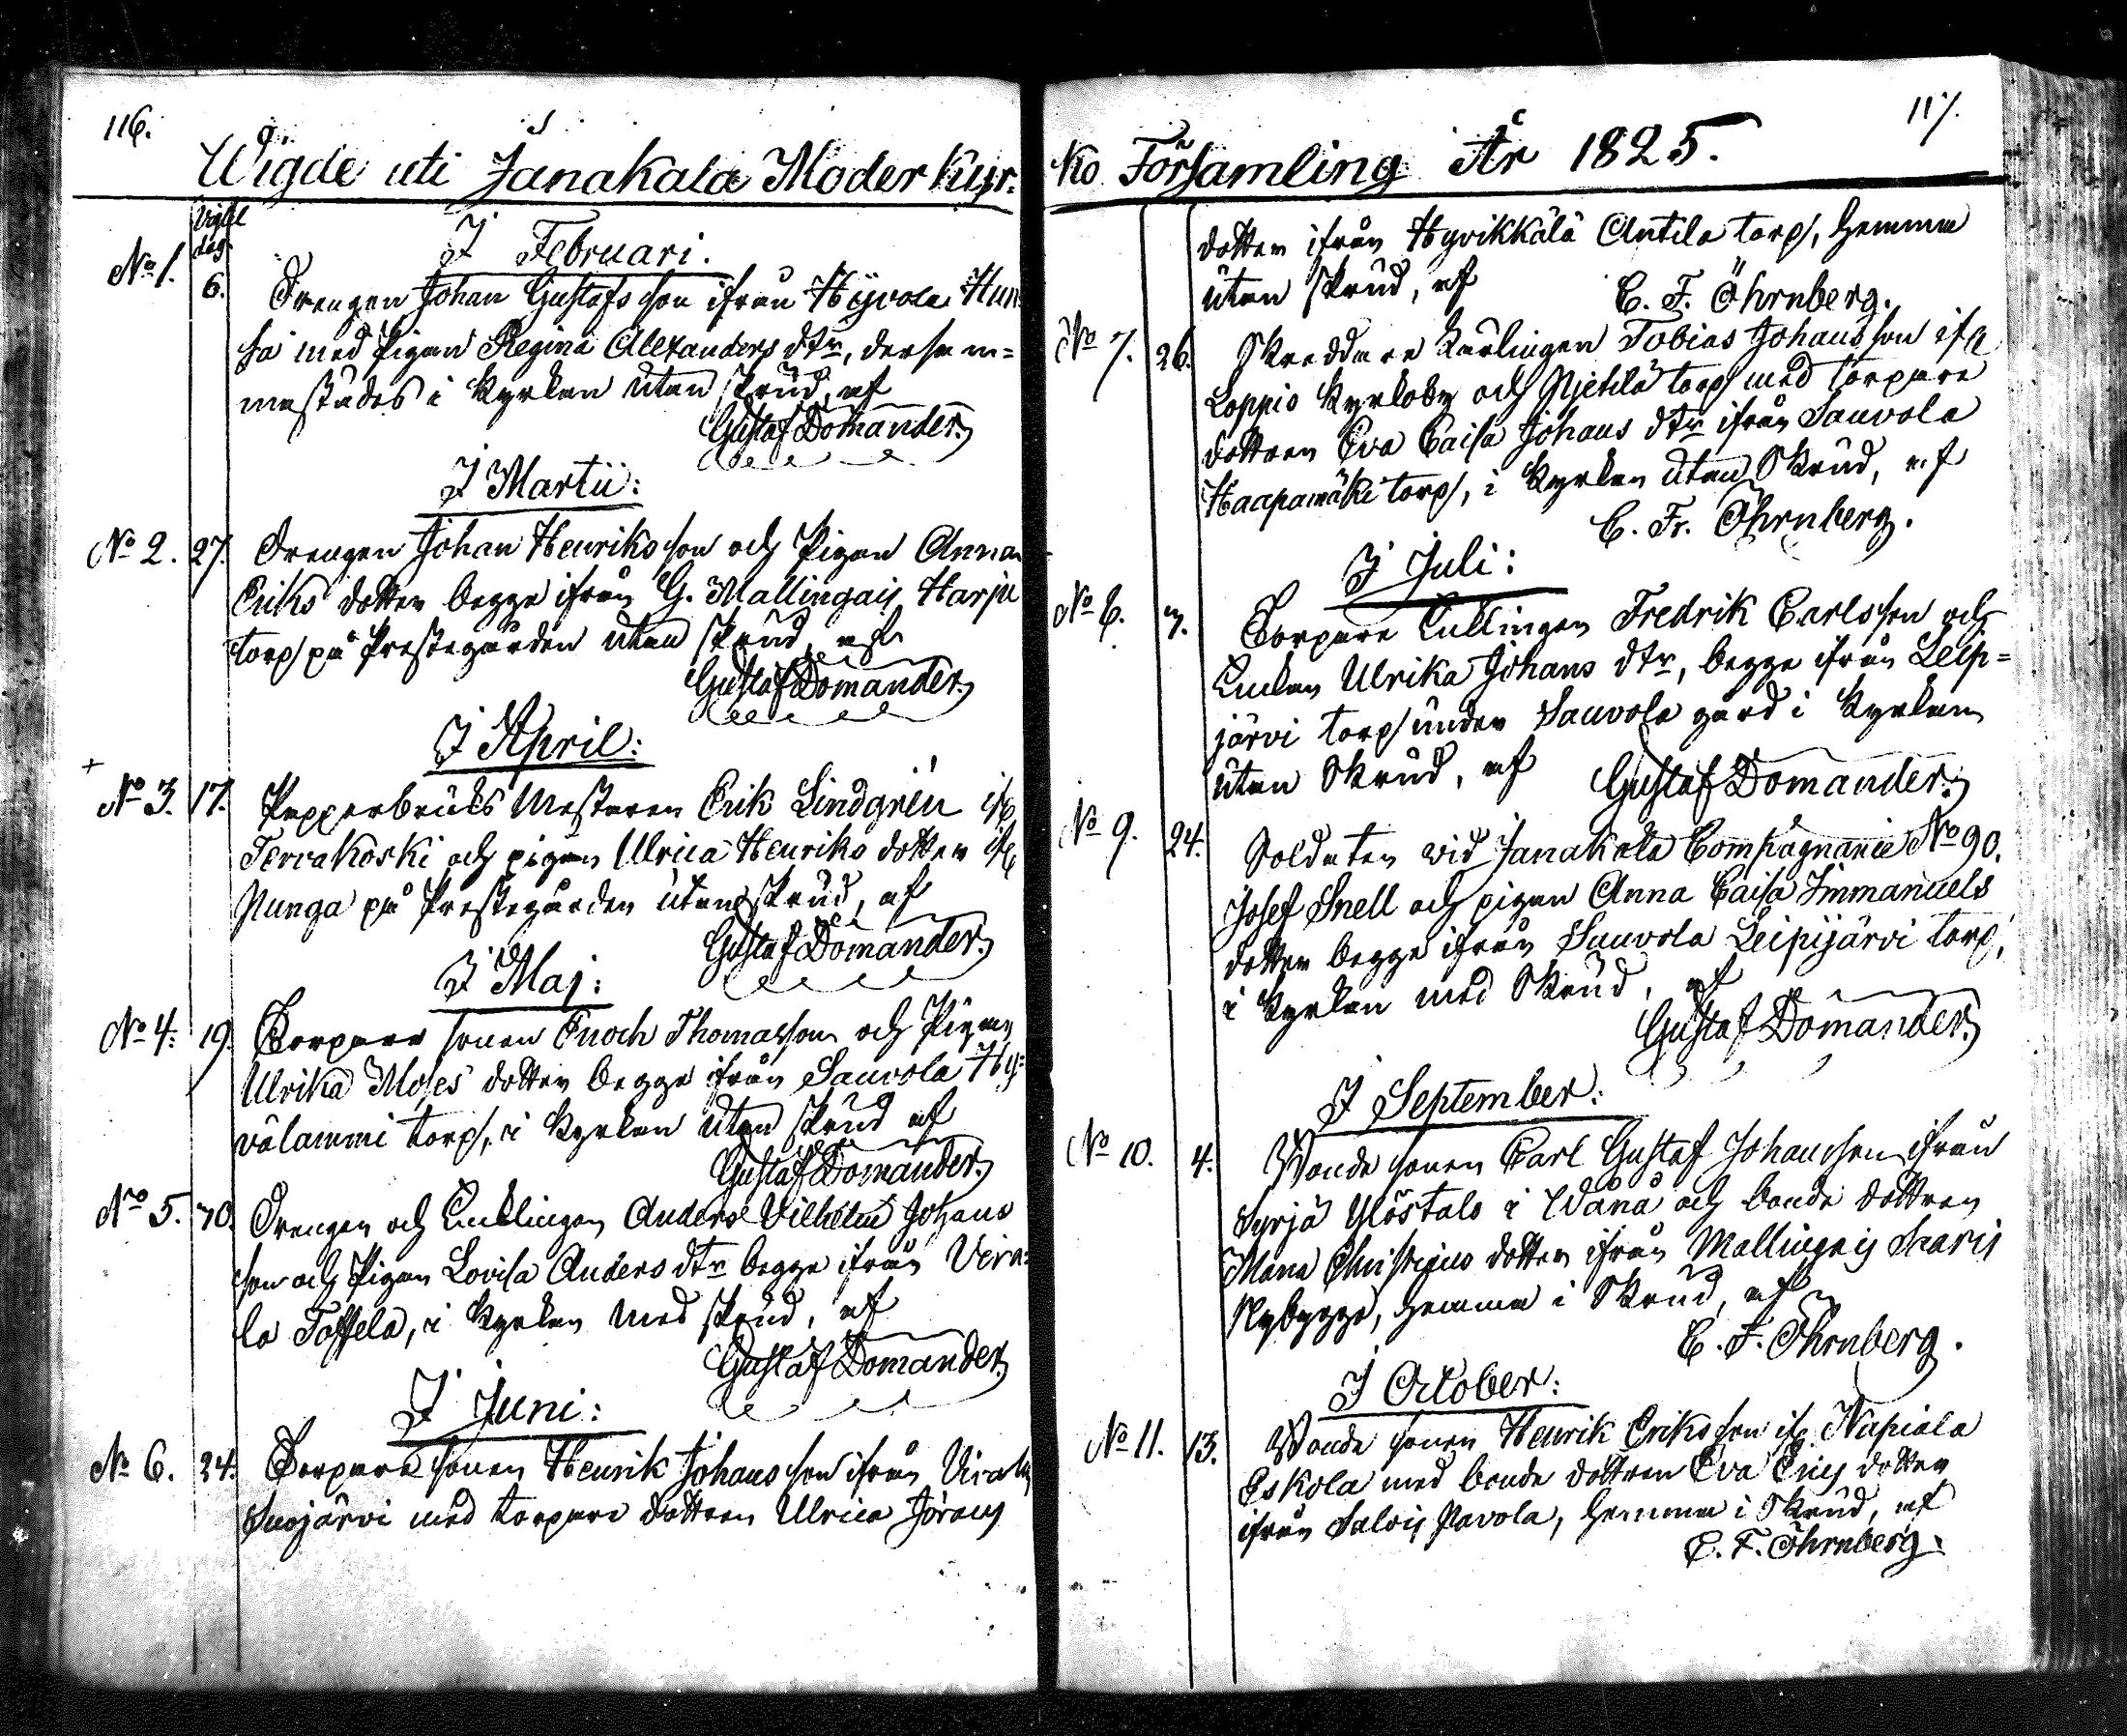 116.
Wigde uti Janakala Moder kyr:
Vigsel
dag.
I Februari.
No 1. 6. Drengen Johan Gustafs son ifrån Hyvola Hun
sa med Pigan Regina Alexanders dtr, dersam=
mastädes i Kyrkan utan skrud, af
Gustaf Domander.
I Martii:
No 2. 27. Drengen Johan Henriks son och Pigan Anna
Eriks dotter begge ifrån G. Mallingais Harju
torp på Prestegården utan skrud, af
Gustaf Domander.
I April:
+
No 3. 17. Papperbruks Mästaren Erik Lindgrén ifr
Tervakoski och pigan Ulrica Henriks dotter ifr
Nunga på Prestegården utan skrud, af
Gustaf Domander.
I Maj:
No 4: 19. Torpare sonen Enoch Thomasson och Pigan
Ulrika Moses dotter begge ifrån Sauvola Hy:
välammi torp, i Kyrkan utan skrud af
Gustaf Domander.
No 5. 70. Drengen och Enklingen Anders Vilhelm Johans
son och Pigan Lovisa Anders dtr begge ifrån Vira:
la Toffela, i Kyrkan med skrud, af
Gustaf Domander.
I Juni:
No 6. 24. Torpare sonen Henrik Johans son ifrån Virala
Suojärvi med torpare dottren Ulrica Jörans
117.
ko Församling År 1825.
dotter ifrån Hyvikkälä Antila torp, hemma
utan skrud, af
C. F. Öhrnberg.
No 7. 26. Skreddare Lärlingen Tobias Johans son ifr
Loppis Kyrkoby och torp med torpare
dottren Eva Caisa Johans dtr ifrån Sauvola
Haapamäki torp, i Kyrkan utan Skrud, af
C. Fr. Öhrnberg.
I Juli:
No 8. 7. Torpare Enklingen Fredrik Carlsson och
Enkan Ulrika Johans dtr, begge ifrån Leip=
järvi torp under Sauvola gård i Kyrkan
utan Skrud, af
Gustaf Domander.
No 9. 24. Soldaten vid Janakala Compagnanie No 90.
Josef Snell och pigan Anna Caisa Immanuels
dotter begge ifrån Sauvola Leipijärvi torp,
i Kyrkan med Skrud, af
Gustaf Domander.
I September:
No 10. 4. Bonde sonen Carl Gustaf Johansson ifrån
Syrjä Ylöstalo i Wånå och bonde dottren
Maria dotter ifrån Mallingais Saaris
Nybygge, hemma i Skrud, af
C. F. Öhrnberg.
I October:
No 11. 13. Bonde sonen Henrik Eriks son ifr Napiala
Eskola med bonde dottren Eva Erics dotter
ifrån Salois Pavola, hemma i Skrud, af
C. F. Öhrnberg.